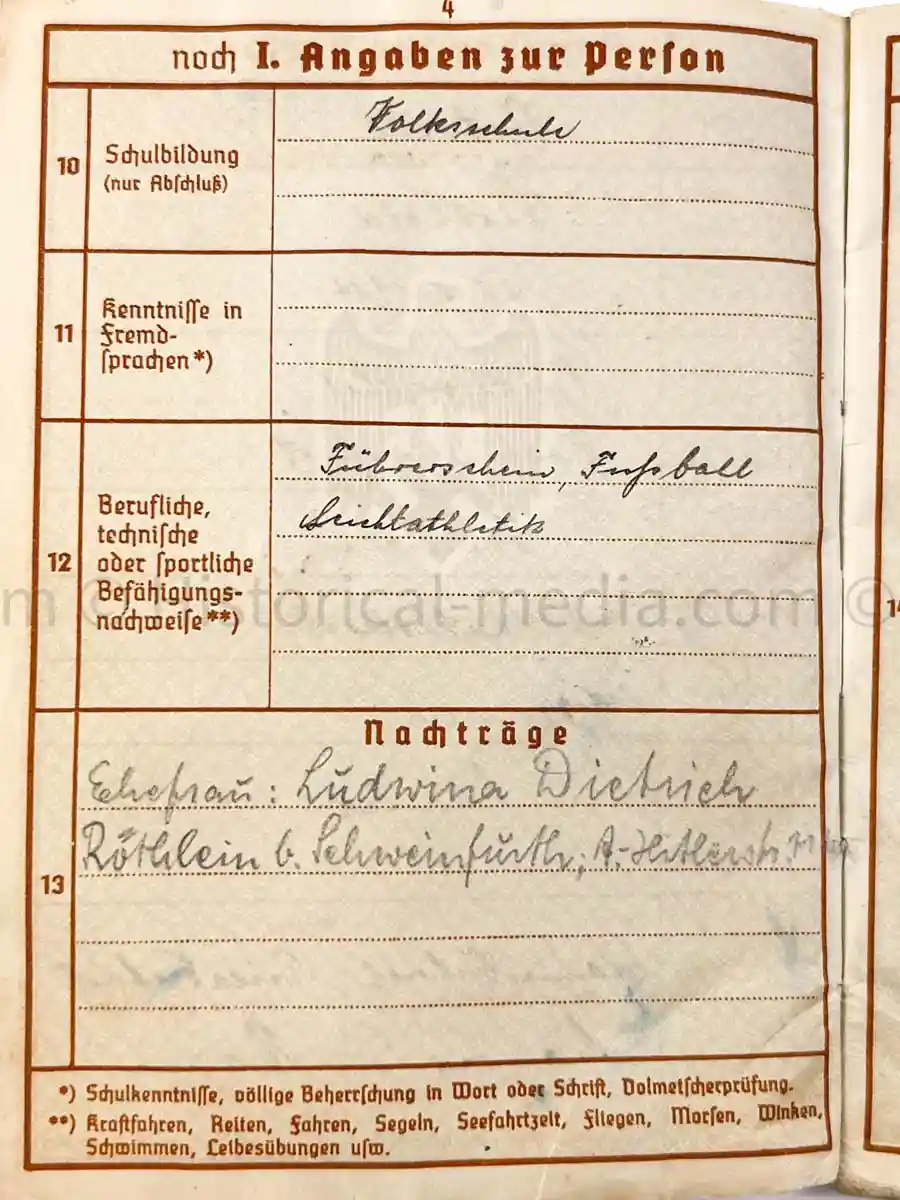 4
noch I. Angaben zur Person
10
Schulbildung
(nur Abschluß)
Volksschule
11
Kenntnisse in
Fremd-
sprachen*)
12
Berufliche,
technische
oder sportliche
Befähigungs-
nachweise**)
Führerschein, Fußball
Leichtathletik
m © Historical-media.com ©
13
Nachträge
Ehefrau: Ludwina Dietrich
Röthlein b. Schweinfurth; A.-Hitlerstr.
*) Schulkenntnisse, völlige Beherrschung in Wort oder Schrift, Dolmetscherprüfung.
**) Kraftfahren, Reiten, Fahren, Segeln, Seefahrtzeit, Fliegen, Morsen, Winken,
Schwimmen, Leibesübungen usw.